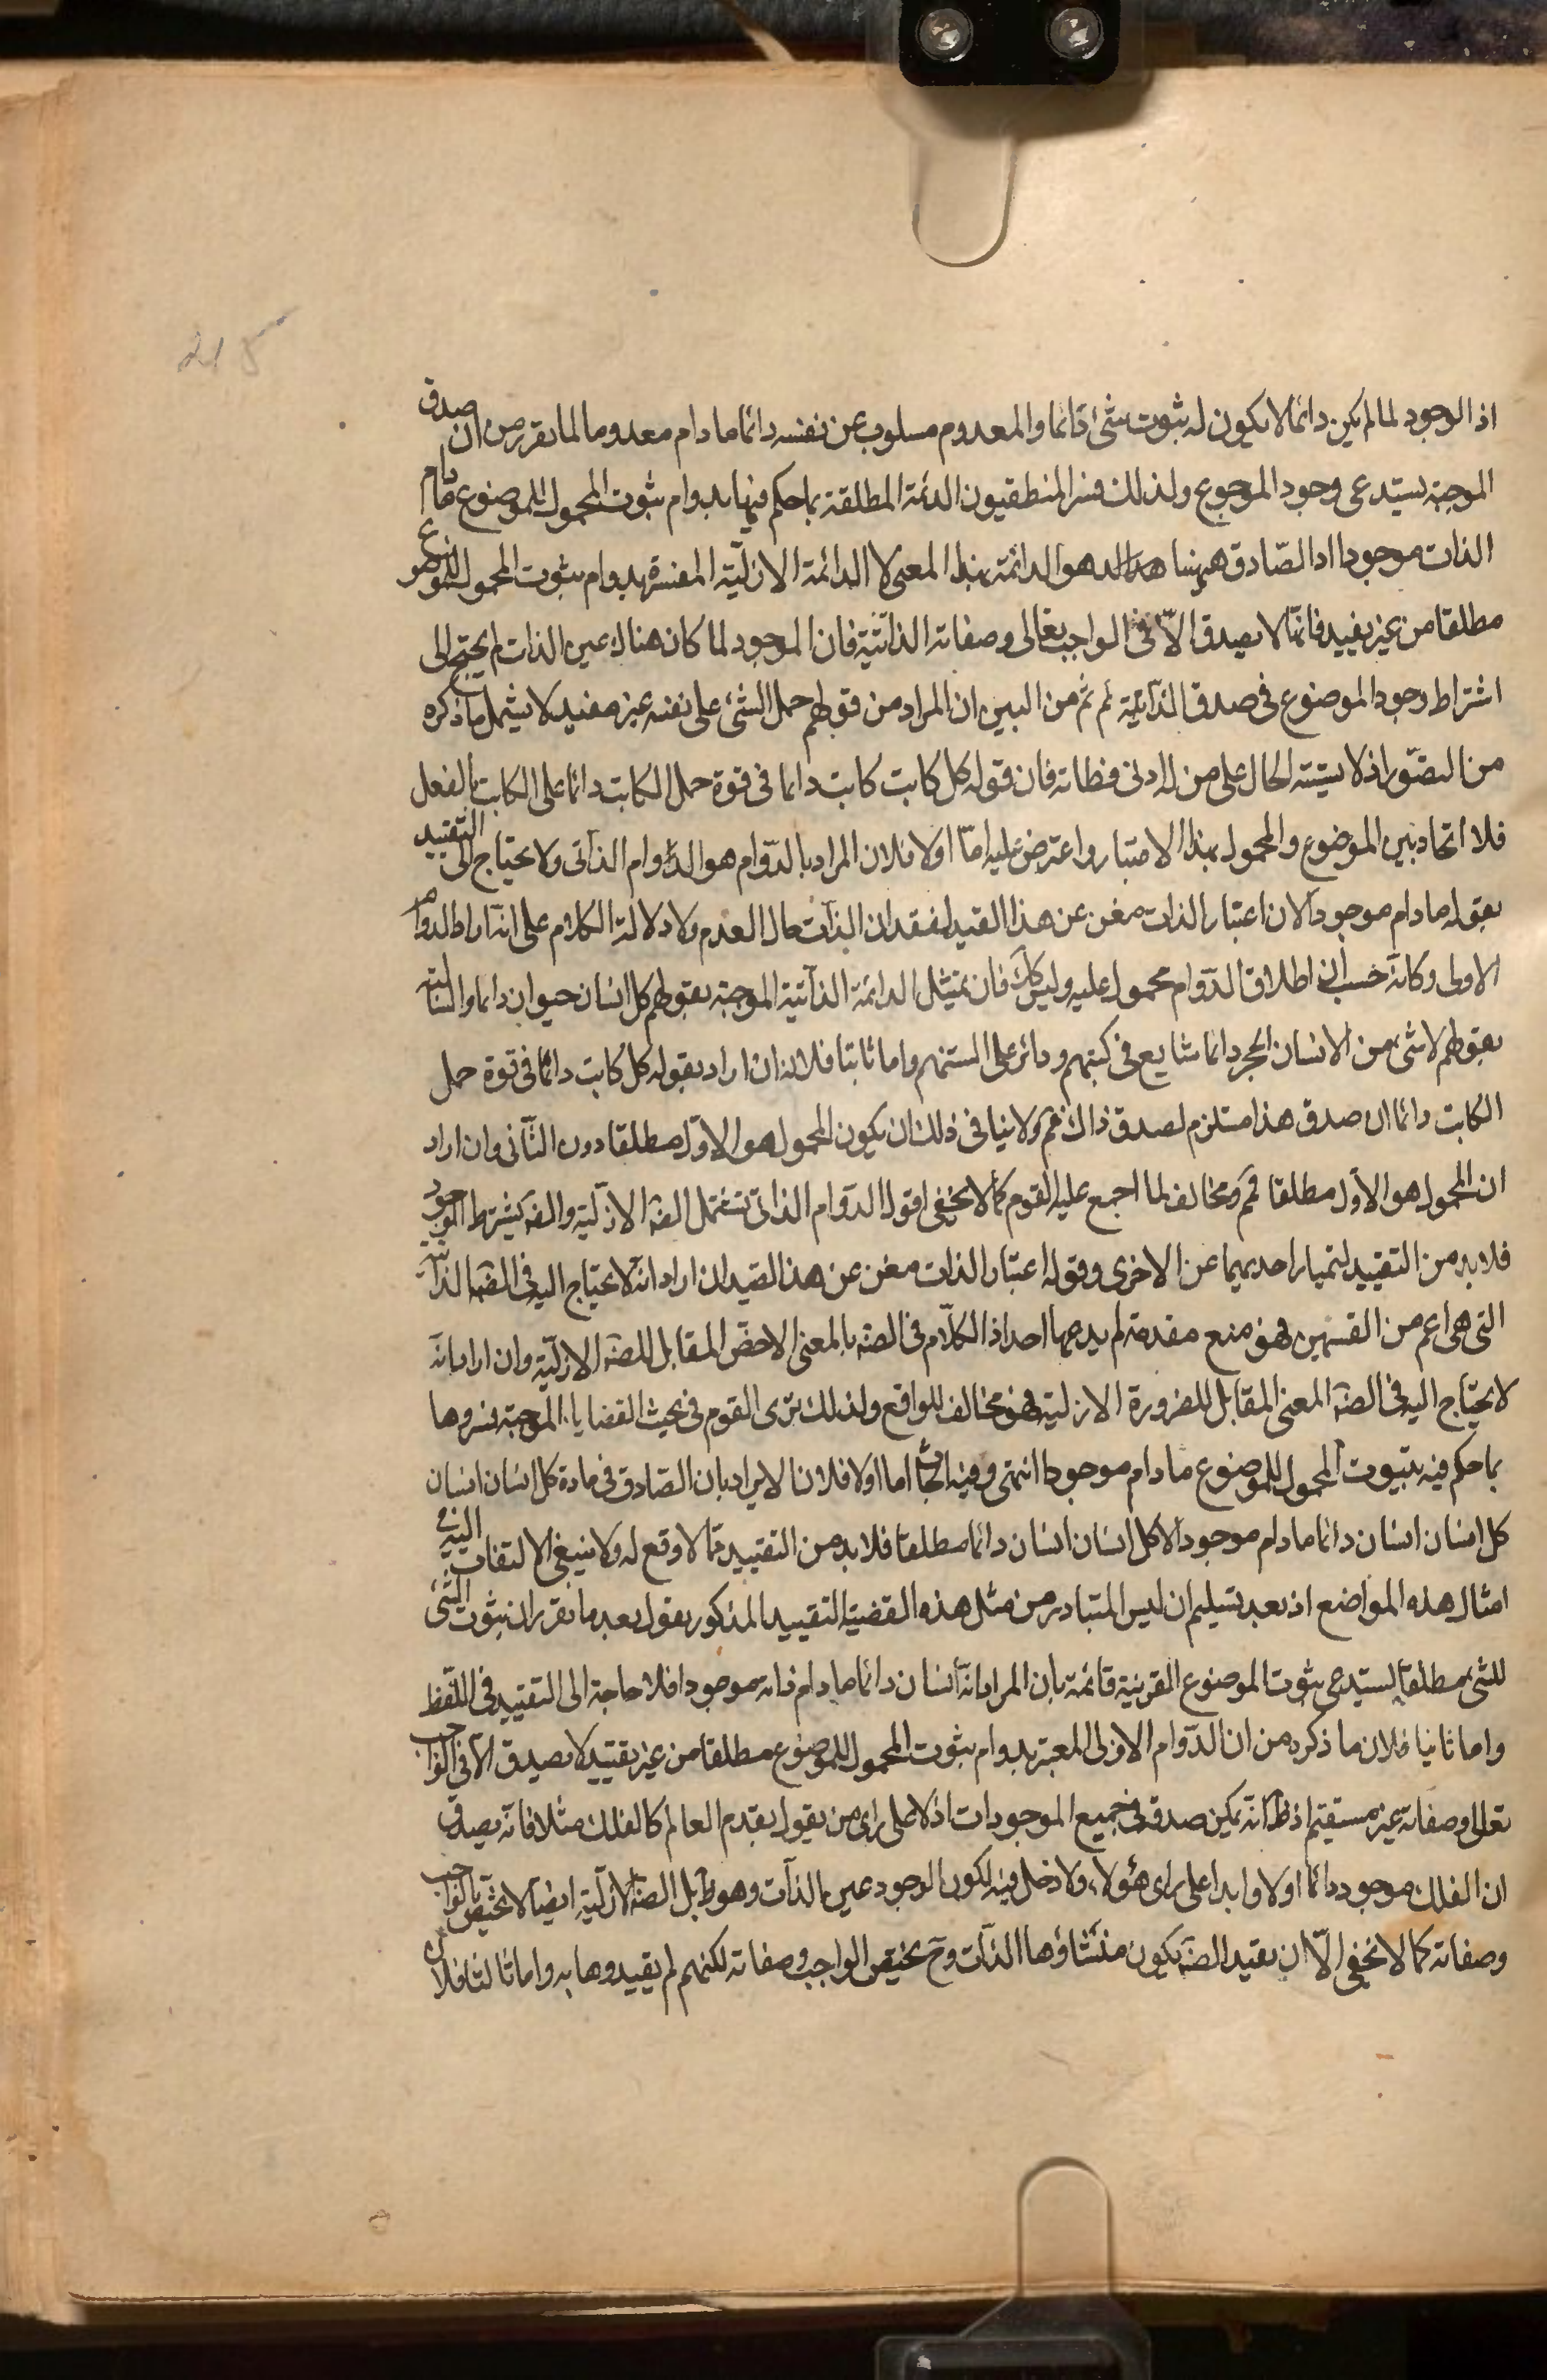 215
اذ الوجود لما لم يكن دائما لا يكون له ثبوت شئ دائما والمعدوم مسلوب عن نفسه دائما ما دام معدوما لما تقرر من ان صدق
الموجبة يستدعى وجود الموجوع ولذلك فسر المنطقيون الدائمة المطلقة بما حكم فيها بدوام ثبوت المحمول للموضوع ما دام
الذات موجودا اذ الصادق ههنا هو الدائمة بهذا المعنى لا الدائمة الازلية المفسرة بدوام ثبوت المحمول للموضوع
مطلقا من غير تقييد فانها لا يصدق الا فى الواجب تعالى وصفاته الذاتية فان الموجود لما كان هناك عين الذات لم يحتج الى
اشتراط وجود الموضوع فى صدق الذاتية ثم من البين ان المراد من قولهم حمل الشئ على نفسه غير مفيد لا يشمل ما ذكره
من التصور اذ لا يشتبه الحال على من له ادنى فطانة فان قوله كل كاتب كاتب دائما فى قوة حمل الكاتب دائما على الكاتب بالفعل
فلا اتحاد بين الموضوع والمحمول بهذا الاعتبار واعترض عليه اما اولا فلان المراد بالدوام هو الدوام الذاتى ولا يحتاج الى التقييد
بقوله ما دام موجودا لان اعتبار الذات مغن عن هذا القيد لفقدان الذات حال العدم ولا دلالة الكلام على انه اراد الدوام
الاولى وكانه حسب ان اطلاق الدوام محمول عليه وليس كك فان تمثيل الدائمة الذاتية الموجبة بقولهم كل انسان حيوان دائما والسالبة
بقولهم لا شئ من الانسان بحجر دائما شايع فى كتبهم ودائر على السنتهم واما ثانيا فلانه ان اراد بقوله كل كاتب دائما فى قوة حمل
الكاتب دائما ان صدق هذا مستلزم لصدق ذاك فم ولا ينافى ذلك ان يكون المحمول هو الاول مطلقا دون الثانى وان اراد
ان المحمول هو الاول مطلقا فم ومخالف لما اجمع عليه القوم كما لا يخفى اقول الدوام الذاتى تشتمل الضة الازلية والضة بشرط الوجود
فلا بد من التقييد لتميار احديهما عن الاخرى وقوله اعتبار الذات مغن عن هذا القيد ان اراد انه لا يحتاج اليه فى الضة الذاتية
التى هى اعم من القسمين فهو منع مقدمة لم يدعها احد اذ الكلام فى الضة بالمعنى الاخص المقابل للضة الازلية وان اراد انه
لا يحتاج اليه فى الضة المعنى المقابل للضرورة الازلية فهو مخالف للواقع ولذلك ترى القوم فى بحث القضايا الموجبة فسروها
بما حكم فيه بثبوت المحمول للموضوع ما دام موجودا انتهى وفيه ابحاث اما اولا فلانا لايراد بان الصادق فى مادة كل انسان انسان
كل انسان انسان دائما ما دام موجودا لا كل انسان انسان دائما مطلقا فلا بد من التقييد مما لا وقع له ولا ينبغى الالتفات اليه فى
امثال هذه المواضع اذ بعد تسليم ان ليس المتبادر من مثل هذه القضية التقييد المذكور بقول بعد ما تقرر ان ثبوت الشئ
للشئ مطلقا يستدعى ثبوت الموضوع القرينة قائمة بان المراد انه انسان دائما ما دام ذاته موجودا فلا حاجة الى التقييد فى اللفظ
واما ثانيا فلان ما ذكره من ان الدوام الازلى المعتبر بدوام ثبوت المحمول للموضوع مطلقا من غير تقييد لا يصدق الا فى الواجب
تعالى وصفاته غير مستقيم اذ ظ انه يمكن صدقه فى جميع الموجودات اذ لا على راى من يقول بقدم العالم كالفلك مثلا فانه يصدق
ان الفلك موجود دائما اولا وابدا على راى هؤلاء ولا دخل فيه لكون الوجود عين الذات وهو ظ بل الضة الازلية ايضا لا يختص بالواجب
وصفاته كما لا يخفى الا ان يقيد الضة بكون منشاؤها الذات وح يختص الواجب وصفاته لكنهم لم يقيدوها به واما ثالثا فلان